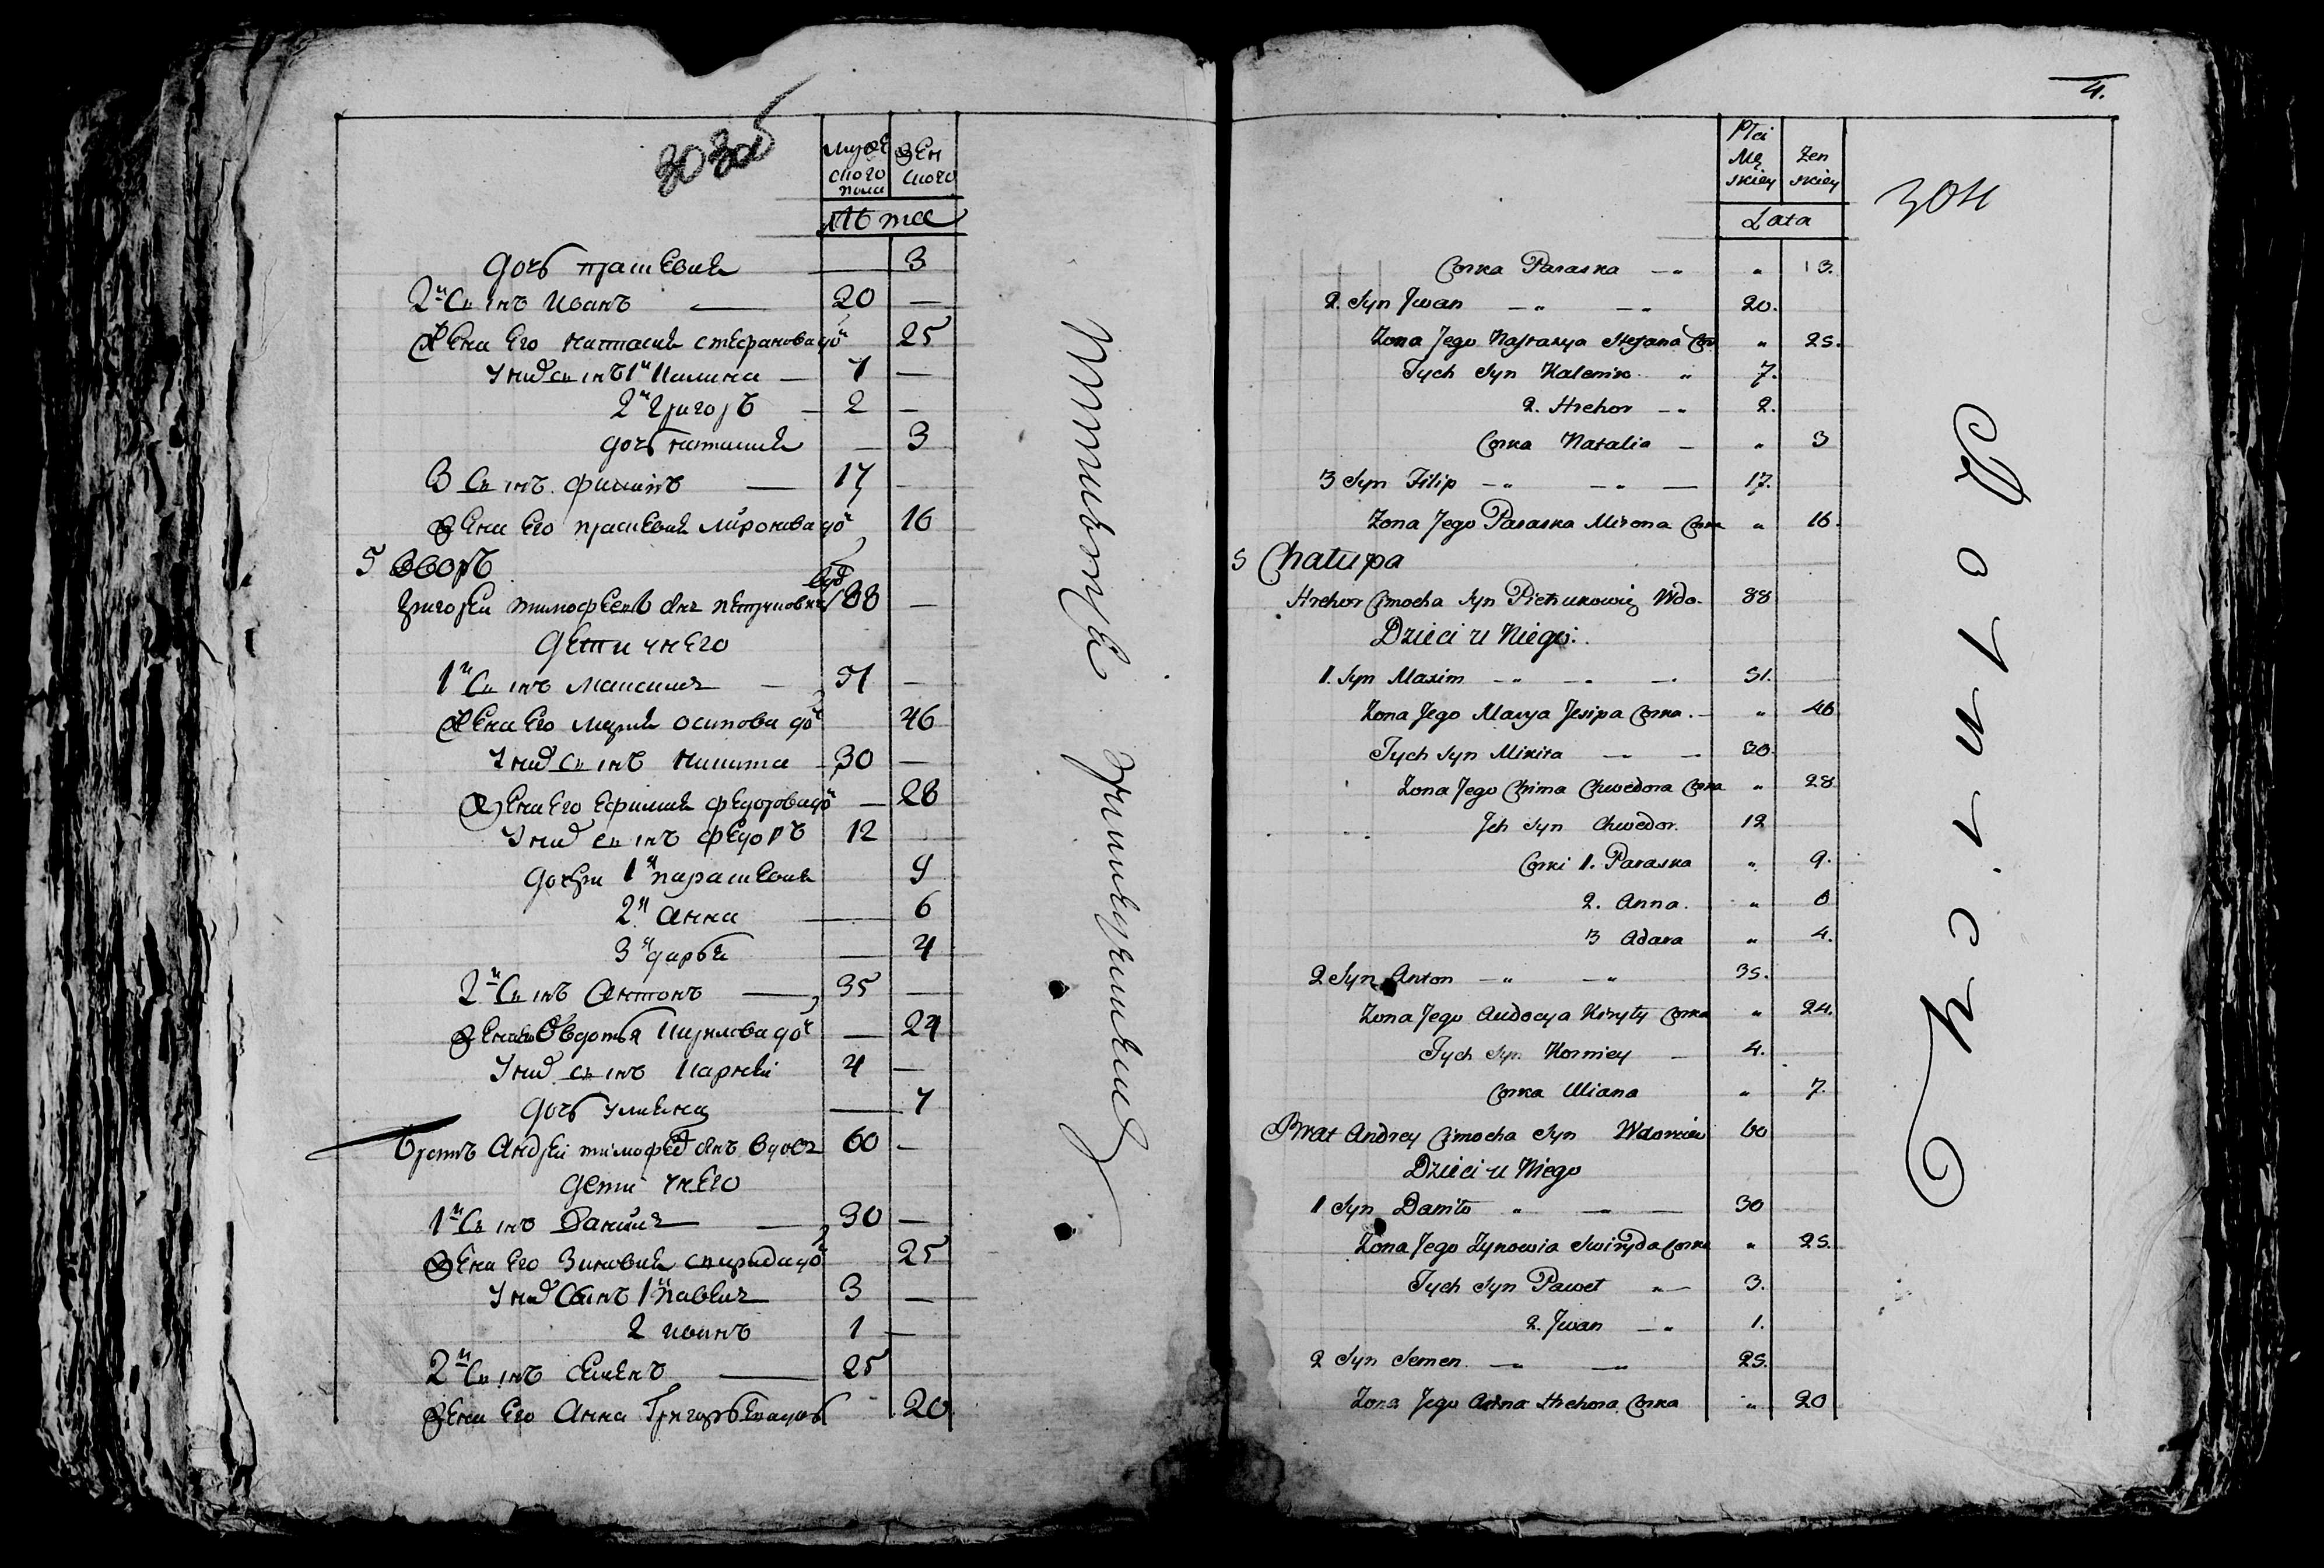 303об
мужескаго пола
женскаго
лѣта
дочь прасковия — 3
2й Сынъ Иванъ — 20 —
Жена Его настасия стефанова дочь 25
У них сынъ 1й 7 —
2й григоръ — 2 —
дочь наталия — 3
3 Сынъ филипъ — 17 —
Жена Его прасковия миронова дочь 16
5 дворъ
григорей тимофеевъ снъ вдов 88 —
дети у него
1й Сынъ максимъ — 51 —
Жена Его мария осипова дочь 46
У них сынъ никита — 30 —
Жена Его ефимия федорова дочь — 28
У них сынъ федоръ 12
дочери 1я парасковия 9
2я анна — 6
3я дарья — 4
2й Сынъ Антонъ — 35 —
Жена его Овдотья кирилова дочь — 24
У них сынъ карней 4 —
дочь ульяна — 7
братъ Андрей тимофеевъ снъ вдовъ 60 —
дети у него
1й Сынъ Данила — 30 —
Жена Его Зиновия спирида дочь 25
У них Сынъ 1й павелъ 3 —
2 иванъ 1 —
2й Сынъ семенъ — 25
Жена Его Анна Григорьева дочь 20
4.
304
Płci Męskiey
Żenskiey
Lata
Corka Paraska — „ „ 3.
2. Syn Jwan — „ — „ 20.
Żona Jego Nastasya Stefana Cor. „ 25.
Tych Syn Kalenik „ 7.
2. Hrehor — „ 2.
Corka Natalia — „ 3
3 Syn Filip — „ — „ — 17.
Żona Jego Paraska Mirona Corka „ 16.
5 Chałupa
Hrehor Cimocha Syn Pietrukowicz Wdo. 88
Dzieci u Niego.
1. Syn Maxim — „ — „ — 51.
Żona Jego Marya Jesipa Corka. — „ 46
Tych Syn Mikita — — 30.
Żona Jego Chima Chwedora Corka „ 28
Jch Syn Chwedor. 12
Corki 1. Paraska „ 9.
2. Anna. „ 6
3 Adara „ 4.
2 Syn Anton — „ — „ 35.
Żona Jego Audocya Kiryły Corka „ 24.
Tych Syn Korniey — 4.
Corka Uliana „ 7.
Brat Andrey Cimocha Syn Wdowiec 60
Dzieci u Niego
1 Syn Daniło „ — — 30
Żona Jego Zynowia Swiryda Corka „ 25.
Tych Syn Paweł „ — 3.
2. Jwan — „ 1.
2 Syn Semen — — „ 25.
Żona Jego Anna Hrehora Corka „ 20